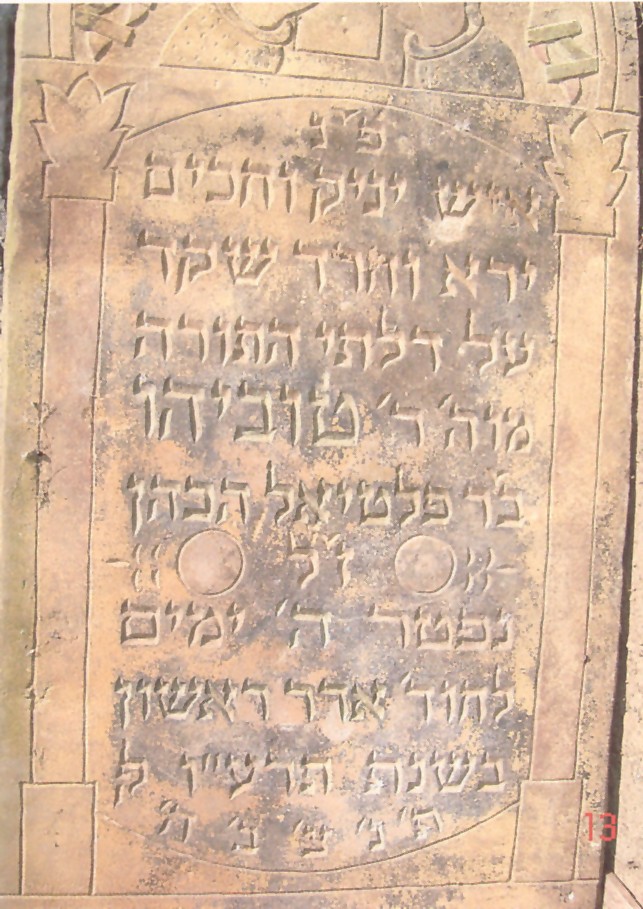 פ"נ
איש יניק וחכים
ירא וחרד שקד
על דלתי התורה
מוה' ר' טוביהו
בר פלטיאל הכהן
ז"ל
נפטר ה' ימים
לחוד' אדר ראשון
בשנת תרע"ו ל
ת' נ' צ' ב' ה'
13